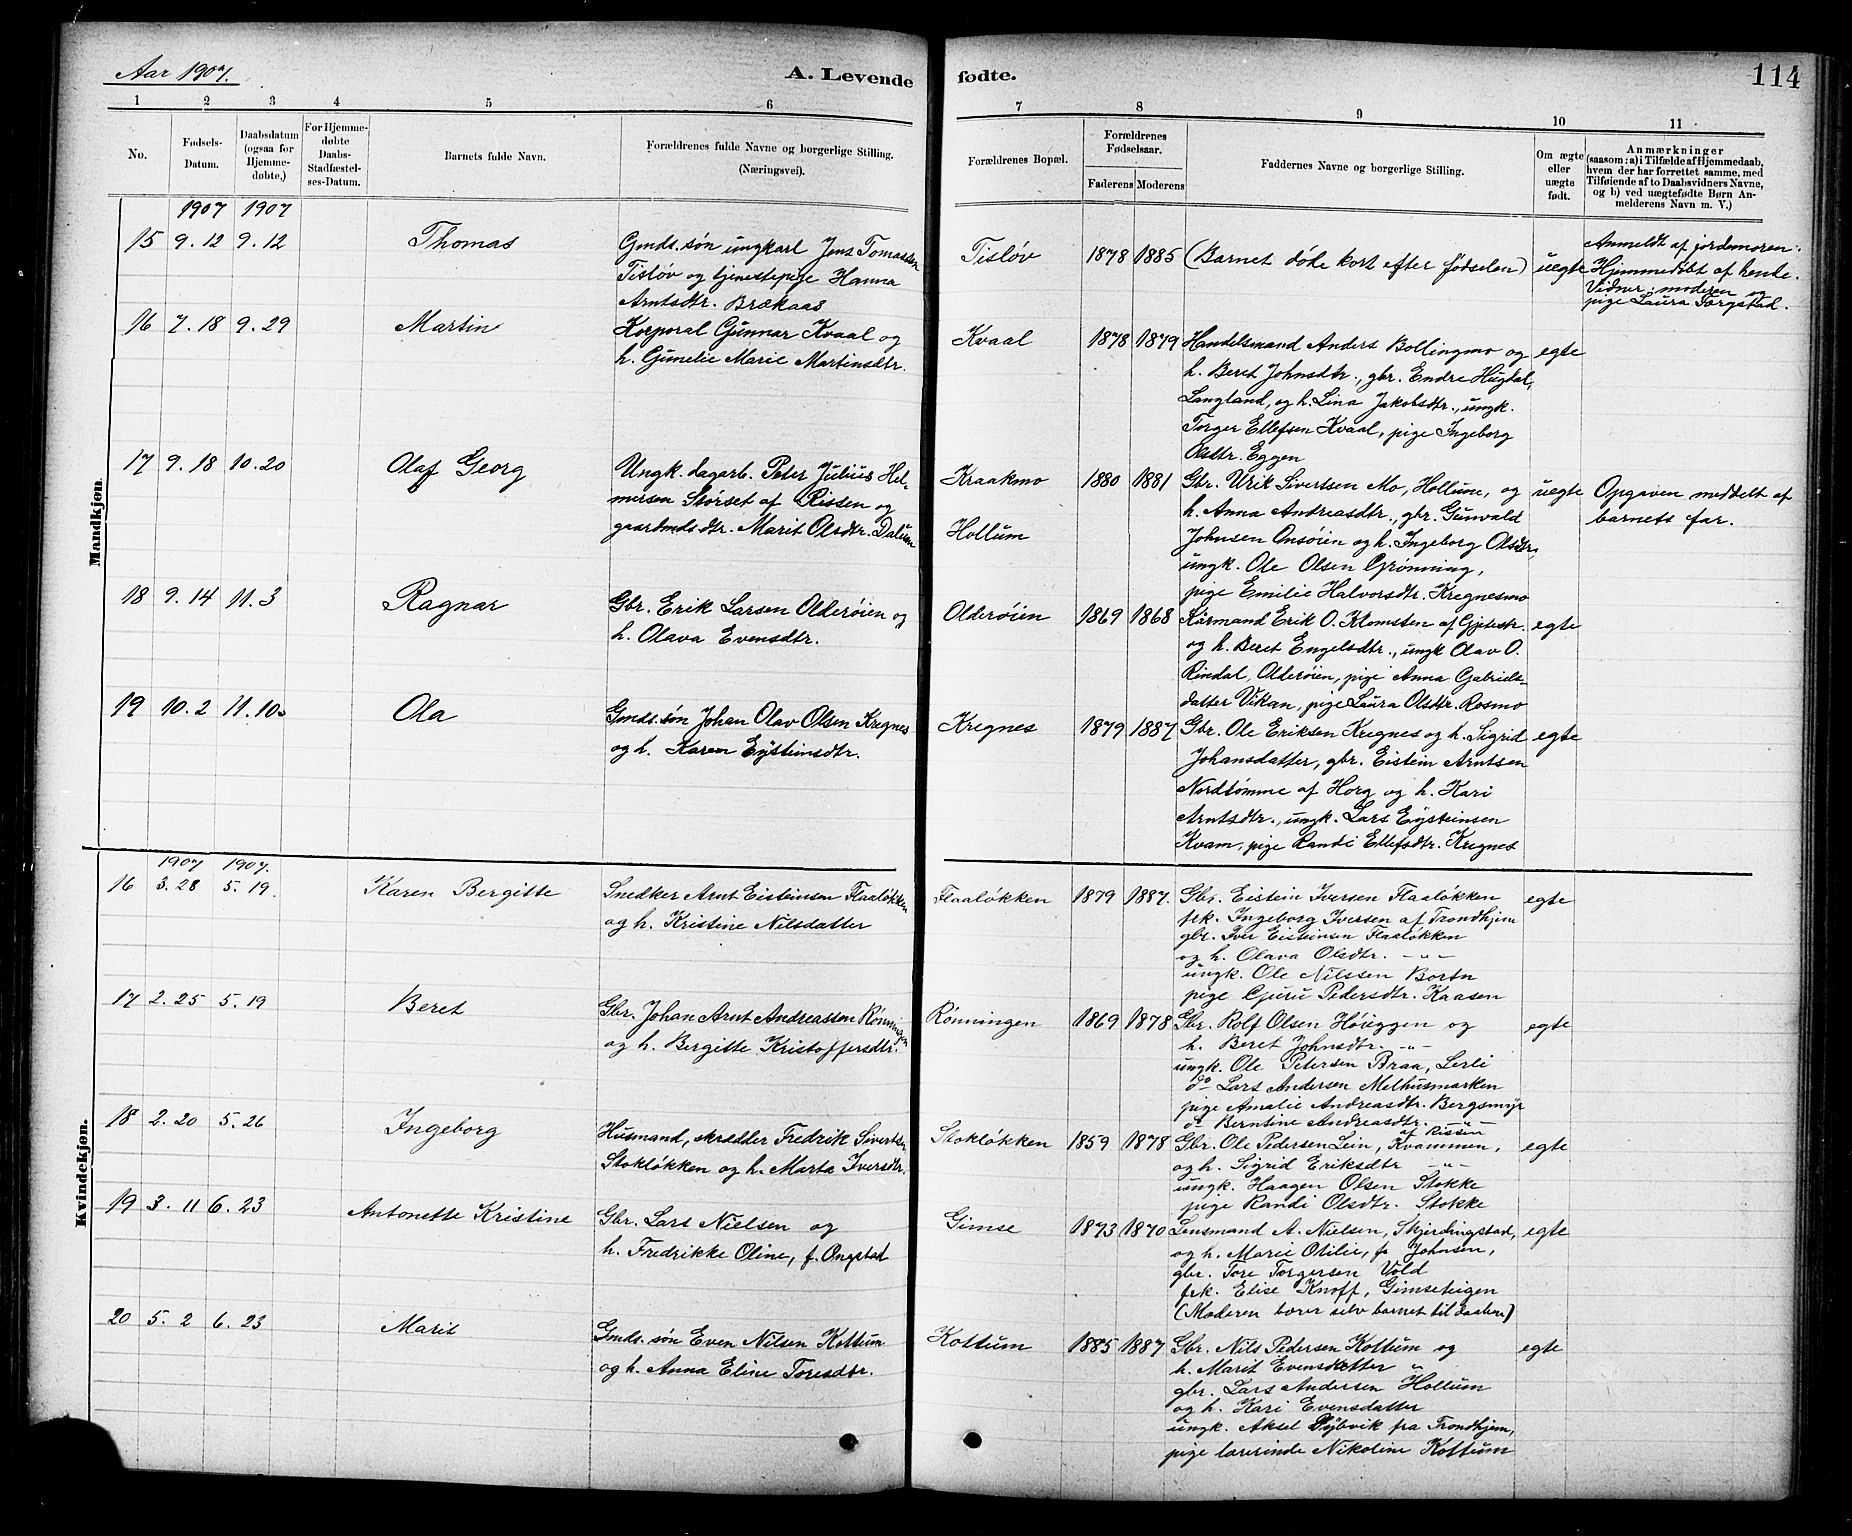 Aar 1907.
A. Levende fødte.
114
1 2 3 4 5 6 7 8 9 10 11
No.
Fødsels-
Datum.
Daabsdatum
(ogsaa for
Hjemme-
døbte.)
For Hjemme-
døbte
Daabs-
Stadfæstel-
ses-Datum.
Barnets fulde Navn.
Forældrenes fulde Navne og borgerlige Stilling.
(Næringsvei).
Forældrenes Bopæl.
Forældrenes
Fødselsaar.
Faderens Moderens
Faddernes Navne og borgerlige Stilling.
Om ægte
eller
uægte
født.
Anmærkninger
(saasom: a) i Tilfælde af Hjemmedaab,
hvem der har forrettet samme, med
Tilføiende af to Daabsvidners Navne,
og b) ved uægtefødte Børn An-
melderens Navn m. V.)
Mandkjøn.
1907 1907
15 9.12 9.12 Thomas
Gmds. søn ungkarl Jens Tomassen
Tisløv og tjenestepige Hanna
Arntsdtr. Brækaas
Tisløv 1878 1885 (Barnet døde kort efter fødselen) uegte
Anmeldt af jordemoren.
Hjemmedøbt af hende.
Vidner: moderen og
pige Laura Torgstad.
16 7.18 9.29 Martin
Korporal Gunnar Kvaal og
h. Gunelie Marie Martinsdtr.
Kvaal 1878 1879 Handelsmand Anders Bollingmo og egte
h. Beret Johnsdtr., gbr. Endre Hugdal,
Langland, og h. Lina Jakobsdtr., ungk.
Torger Ellefsen Kvaal, pige Ingeborg
Olsdtr. Eggen
17 9.18 10.20 Olaf Georg
Ungk. dagarb. Peter Julius Hel-
mersen Størset af Rissen og
gaardmdsdtr. Marit Olsdtr. Dalum
Kraakmo
Hollum
1880 1881 Gbr. Urik Sivertsen Mo, Hollum, og uegte
h. Anna Andreasdtr., gbr. Gunvald
Johnsen Onsøien og h. Ingeborg Olsdtr.
ungk. Ole Olsen Grønning,
pige Emilie Halvorsdtr. Kregnesmo
Opgaven meddelt af
barnets far.
18 9.14 11.3 Ragnar
Gbr. Erik Larsen Olderøien og
h. Olava Evensdtr.
Olderøien 1869 1868 Kårmand Erik O. Klomsten af Gjetestr. egte
og h. Beret Engelsdtr., ungk Olav O.
Rindal, Olderøien, pige Anna Gabriels-
datter Vikan, pige Laura Olsdtr. Rosmo
19 10.2 11.10 Ola
Gmds. søn Johan Olav Olsen Kregnes
og h. Karen Eysteinsdtr.
Kregnes 1879 1887 Gbr. Ole Eriksen Kregnes og h. Sigrid egte
Johansdatter, gbr. Eistein Arntsen
Nordtømme af Horg og h. Kari
Arntsdtr., ungk. Lars Eysteinsen
Kvam, pige Randi Ellefsdtr. Kregnes
Kvindekjøn.
1907 1907.
16 3.28 5.19. Karen Bergitte
Snedker Arnt Eisteinsen Flaaløkken
og h. Kristine Nilsdatter
Flaaløkken 1879 1887. Gbr. Eistein Iversen Flaaløkken egte
frk. Ingeborg Iversen af Trondhjem
gbr. Iver Eisteinsen Flaaløkken
og h. Olava Olsdtr. -"-
ungk. Ole Nilssen Borten
pige Guru Pedersdtr. Kaasen
17 2.25 5.19 Beret
Gbr. Johan Arnt Andreassen Rønningen
og h. Bergitte Kristoffersdtr.
Rønningen 1869 1878 Gbr. Rolf Olsen Høiggen og egte
h. Beret Johnsdtr. -"-
ungk. Ole Petersen Braa, Lerli
do Lars Andersen Melhusmarken
pige Amalie Andreasdtr. Bergsmyr
do Berntine Andreasdtr. -"-
af Rissen
18 2.20 5.26 Ingeborg
Husmand, skrædder Fredrik Sivertsen
Stokløkken og h. Marta Iversdtr.
Stokløkken 1859 1878 Gbr. Ole Pedersen Lein, Kvammen, egte
og h. Sigrid Eriksdtr -"-
ungk. Haagen Olsen Stokke
pige Randi Olsdtr. Stokke
19 3.11 6.23 Antonette Kristine
Gbr. Lars Nielsen og
h. Fredrikke Oline, f. Ongstad
Gimse 1873 1870 Lensmand A. Nielsen, Skjerdingstad, egte
og h. Marie Otilie, f. Johnsen,
gbr. Tore Torgersen Vold
frk. Elise Knoff, Gimseteigen
(Moderen bærer selv barnet til daaben)
20 5.2 6.23 Marit
Gmds. søn Even Nilsen Kottum
og h. Anna Eline Toresdtr.
Kottum 1885 1887 Gbr. Nils Pedersen Kottum og egte
h. Marit Evensdatter "
gbr. Lars Andersen Hollum
og h. Kari Evensdatter
ungk. Aksel Dybvik fra Trondhjem,
pige lærerinde Nikoline Kottum